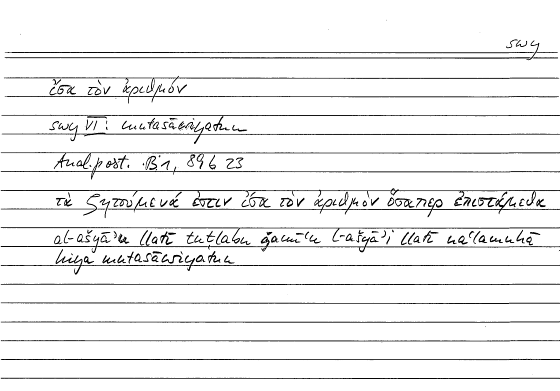 swy
ἴσα τὸν ἀριθμόν
swy VI: mutasāwiyatun
Anal. post. B 1, 89 b 23
τὰ ζητούμενά ἐστιν ἴσα τὸν ἀριθμὸν ὅσαπερ ἐπιστάμεθα
al-ašyāʾu llatī tuṭlabu ǧamīʿu l-ašyāʾi llatī naʿlamuhā
hiya mutasāwiyatun